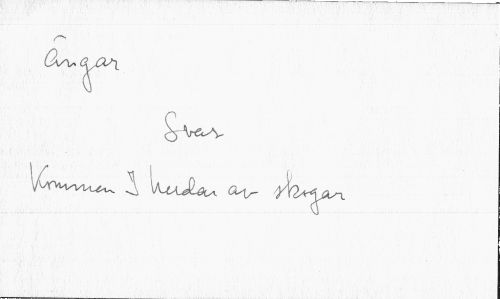 Ängar
Svar
Kommen I herdar av skogar